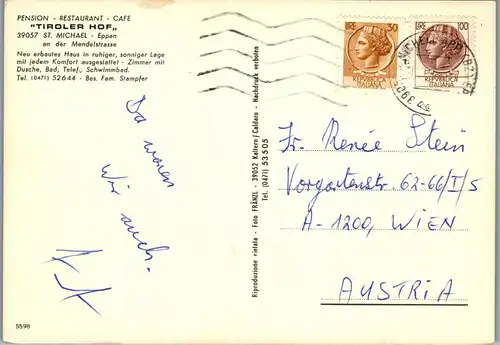 PENSION - RESTAURANT - CAFE
"TIROLER HOF"
39057 ST. MICHAEL - Eppan
an der Mendelstrasse
Neu erbautes Haus in ruhiger, sonniger Lage
mit jedem Komfort ausgestattet - Zimmer mit
Dusche, Bad, Telef., Schwimmbad.
Tel. (0471) 52644 - Bes. Fam. Stampfer
Da waren
wir auch.
5598
Riproduzione vietata - Foto FRÄNZL - 39052 Kaltern/Caldaro - Nachdruck verboten
Tel. (0471) 53505
50
REPUBBLICA
ITALIANA
LIRE 100
REPUBBLICA
ITALIANA
Fr. Renée Stein
Vorgartenstr. 62-66/I/5
A-1200, WIEN
AUSTRIA